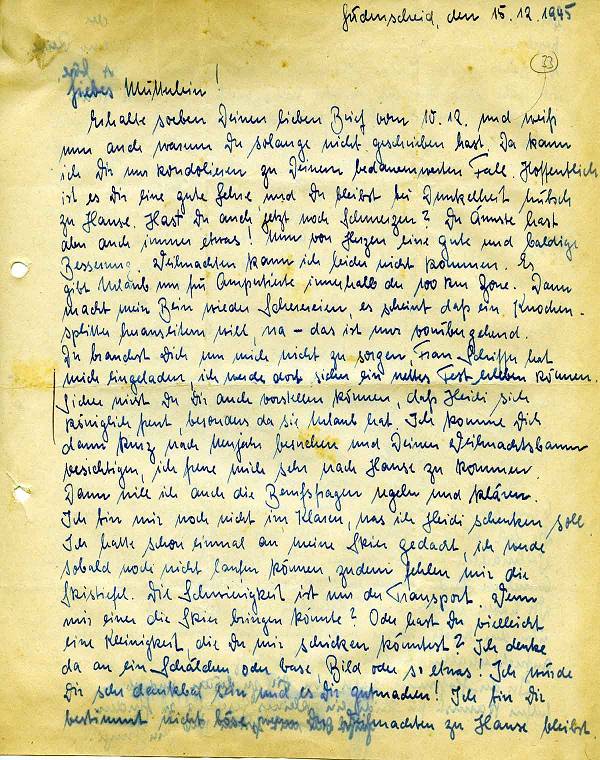 Lüdenscheid, den 15.12.1945
33
Liebes Mütterlein!
Erhalte soeben Deinen lieben Brief vom 10.12. und weiß
nun auch warum Du solange nicht geschrieben hast. Da kann
ich Dir nur kondolieren zu Deinem bedauernswerten Fall. Hoffentlich
ist es Dir eine gute Lehre und Du bleibst bei Dunkelheit hübsch
zu Hause. Hast Du auch jetzt noch Schmerzen? Du Ärmste hast
aber auch immer etwas! Nun von Herzen eine gute und baldige
Besserung. Weihnachten kann ich leider nicht kommen. Es
gibt Urlaub nur für Amputierte innerhalb der 100 km Zone. Dann
macht mein Bein wieder Scherereien, es scheint daß ein Knochen-
splitter herauseitern will, na – das ist nur vorübergehend.
Du brauchst Dich um mich nicht zu sorgen. Frau hat
mich eingeladen, ich werde dort sicher ein nettes Fest erleben können.
Sicher wirst Du Dir auch vorstellen können, daß Heidi sich
königlich freut, besonders da sie Urlaub hat. Ich komme Dich
dann kurz nach Neujahr besuchen und Deinen Weihnachtsbaum
besichtigen, ich freue mich sehr nach Hause zu kommen.
Dann will ich auch die Berufsfragen regeln und klären.
Ich bin mir noch nicht im Klaren, was ich Heidi schenken soll.
Ich hatte schon einmal an meine Skier gedacht, ich werde
sobald noch nicht laufen können, zudem fehlen mir die
Skistiefel. Die Schwierigkeit ist nur der Transport. Wenn
mir einer die Skier bringen könnte? Oder hast Du vielleicht
eine Kleinigkeit, die Du mir schicken könntest? Ich denke
da an ein Schälchen oder Vase, Bild oder so etwas! Ich würde
Dir sehr dankbar sein und es Dir gutmachen! Ich bin Dir
bestimmt nicht böse, wenn Du Weihnachten zu Hause bleibst.